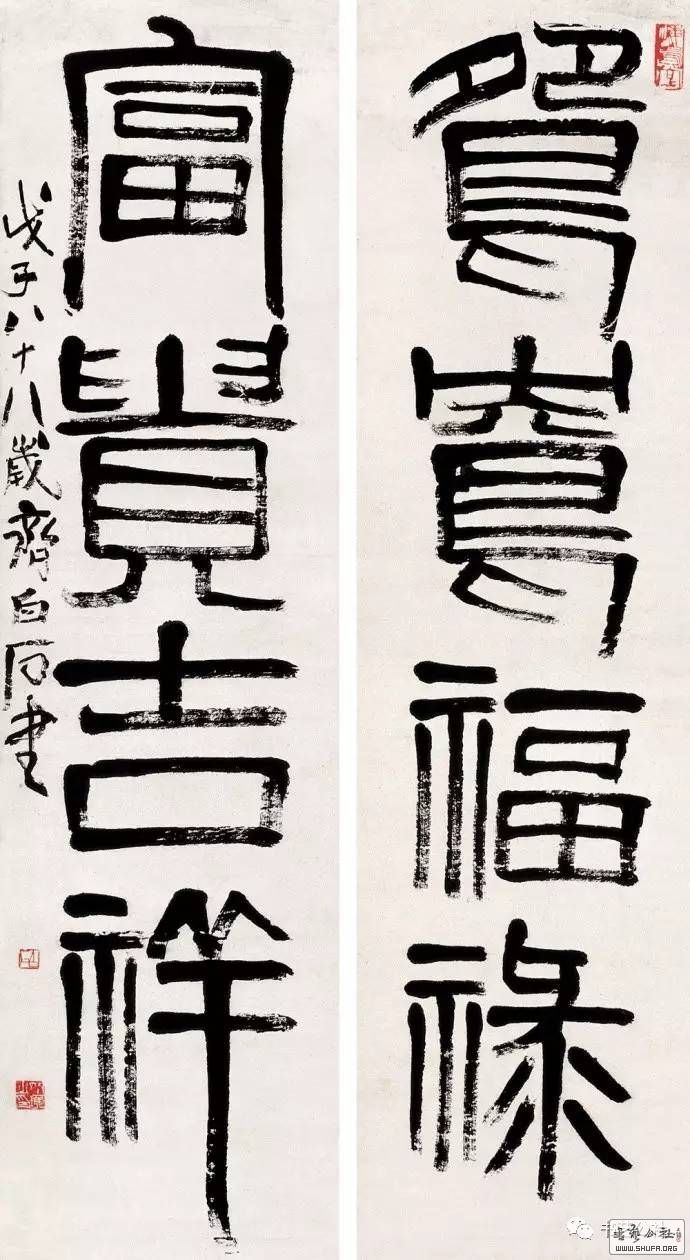 鴛鴦福祿
富貴吉祥
戊子八十八歲齊白石書
書藝公社
WWW.SHUFA.ORG